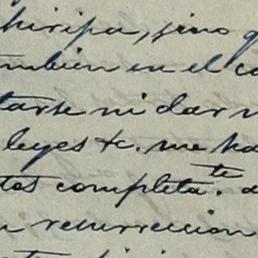 chiripa, sino q
ambien en el co
tarse ni dar n
leyes &c. me ha
tas completa te. a
resurreccion